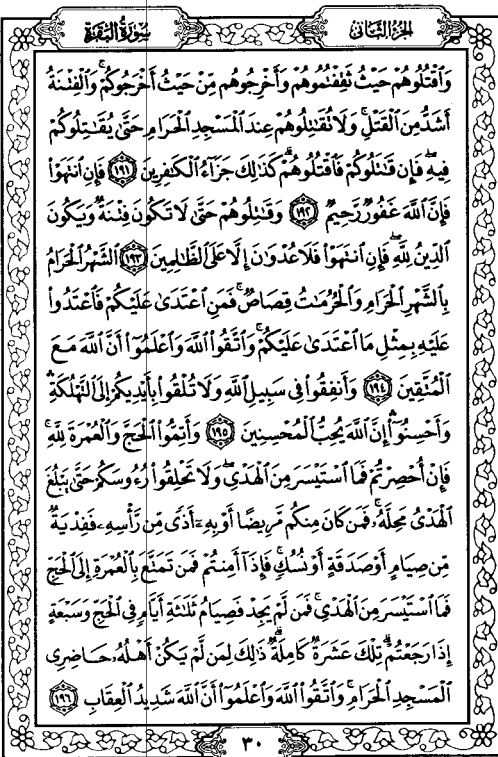 الجزء الثاني
سورة البقرة
وَٱقْتُلُوهُمْ حَيْثُ ثَقِفْتُمُوهُمْ وَأَخْرِجُوهُم مِّنْ حَيْثُ أَخْرَجُوكُمْ ۚ وَٱلْفِتْنَةُ
أَشَدُّ مِنَ ٱلْقَتْلِ ۚ وَلَا تُقَٰتِلُوهُمْ عِندَ ٱلْمَسْجِدِ ٱلْحَرَامِ حَتَّىٰ يُقَٰتِلُوكُمْ
فِيهِ ۖ فَإِن قَٰتَلُوكُمْ فَٱقْتُلُوهُمْ ۗ كَذَٰلِكَ جَزَآءُ ٱلْكَٰفِرِينَ ۝١٩١ فَإِنِ ٱنتَهَوْا۟
فَإِنَّ ٱللَّهَ غَفُورٌ رَّحِيمٌ ۝١٩٢ وَقَٰتِلُوهُمْ حَتَّىٰ لَا تَكُونَ فِتْنَةٌ وَيَكُونَ
ٱلدِّينُ لِلَّهِ ۖ فَإِنِ ٱنتَهَوْا۟ فَلَا عُدْوَٰنَ إِلَّا عَلَى ٱلظَّٰلِمِينَ ۝١٩٣ ٱلشَّهْرُ ٱلْحَرَامُ
بِٱلشَّهْرِ ٱلْحَرَامِ وَٱلْحُرُمَٰتُ قِصَاصٌ ۚ فَمَنِ ٱعْتَدَىٰ عَلَيْكُمْ فَٱعْتَدُوا۟
عَلَيْهِ بِمِثْلِ مَا ٱعْتَدَىٰ عَلَيْكُمْ ۚ وَٱتَّقُوا۟ ٱللَّهَ وَٱعْلَمُوٓا۟ أَنَّ ٱللَّهَ مَعَ
ٱلْمُتَّقِينَ ۝١٩٤ وَأَنفِقُوا۟ فِى سَبِيلِ ٱللَّهِ وَلَا تُلْقُوا۟ بِأَيْدِيكُمْ إِلَى ٱلتَّهْلُكَةِ ۛ
وَأَحْسِنُوٓا۟ ۛ إِنَّ ٱللَّهَ يُحِبُّ ٱلْمُحْسِنِينَ ۝١٩٥ وَأَتِمُّوا۟ ٱلْحَجَّ وَٱلْعُمْرَةَ لِلَّهِ ۚ
فَإِنْ أُحْصِرْتُمْ فَمَا ٱسْتَيْسَرَ مِنَ ٱلْهَدْىِ ۖ وَلَا تَحْلِقُوا۟ رُءُوسَكُمْ حَتَّىٰ يَبْلُغَ
ٱلْهَدْىُ مَحِلَّهُۥ ۚ فَمَن كَانَ مِنكُم مَّرِيضًا أَوْ بِهِۦٓ أَذًى مِّن رَّأْسِهِۦ فَفِدْيَةٌ
مِّن صِيَامٍ أَوْ صَدَقَةٍ أَوْ نُسُكٍ ۚ فَإِذَآ أَمِنتُمْ فَمَن تَمَتَّعَ بِٱلْعُمْرَةِ إِلَى ٱلْحَجِّ
فَمَا ٱسْتَيْسَرَ مِنَ ٱلْهَدْىِ ۚ فَمَن لَّمْ يَجِدْ فَصِيَامُ ثَلَٰثَةِ أَيَّامٍ فِى ٱلْحَجِّ وَسَبْعَةٍ
إِذَا رَجَعْتُمْ ۗ تِلْكَ عَشَرَةٌ كَامِلَةٌ ۗ ذَٰلِكَ لِمَن لَّمْ يَكُنْ أَهْلُهُۥ حَاضِرِى
ٱلْمَسْجِدِ ٱلْحَرَامِ ۚ وَٱتَّقُوا۟ ٱللَّهَ وَٱعْلَمُوٓا۟ أَنَّ ٱللَّهَ شَدِيدُ ٱلْعِقَابِ ۝١٩٦
٣٠